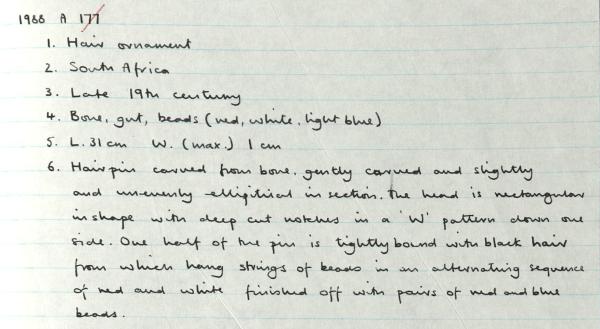 1966 A 177
1. Hair ornament
2. South Africa
3. Late 19th century
4. Bone, gut, beads (red, white, light blue)
5. L. 31cm W. (max.) 1 cm
6. Hairpin carved from bone, gently curved and slightly
and unevenly elliptical in section. The head is rectangular
in shape with deep cut notches in a 'W' pattern down one
side. One half of the pin is tightly bound with black hair
from which hang strings of beads in an alternating sequence
of red and white finished off with pairs of red and blue
beads.